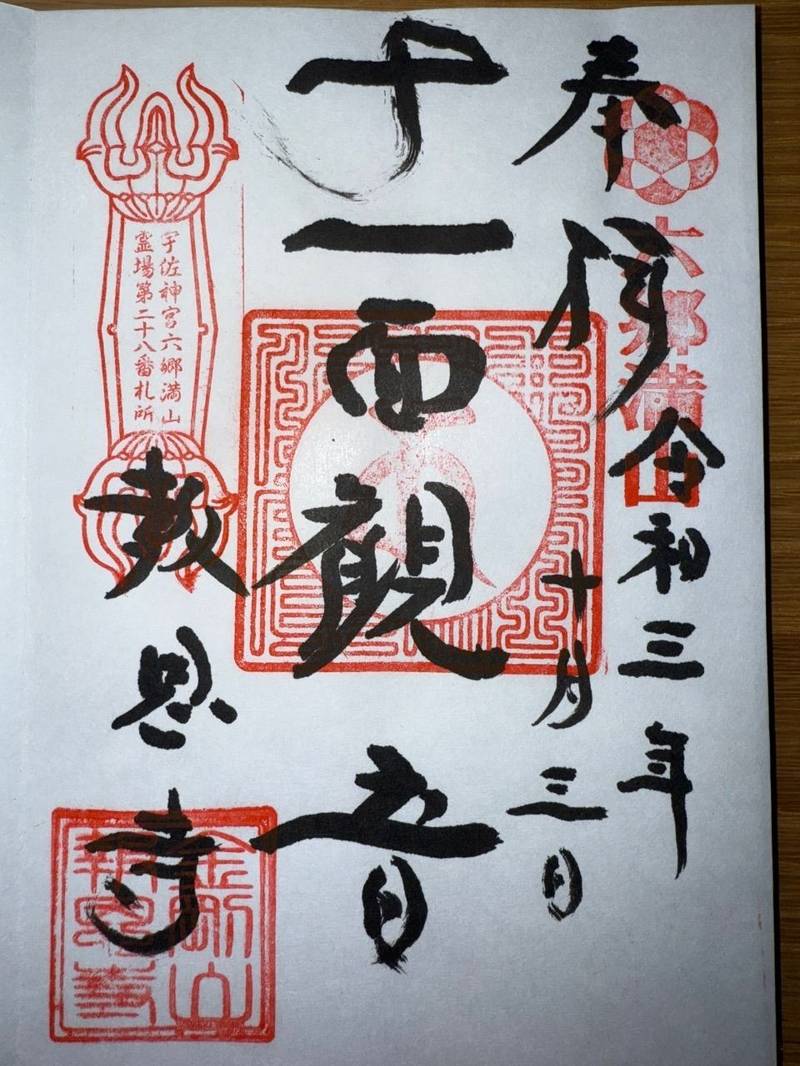 奉拝
六郷満山
令和三年
十月三日
十一面観音
宇佐神宮六郷満山
霊場第二十八番札所
報恩寺
金剛山
報恩寺